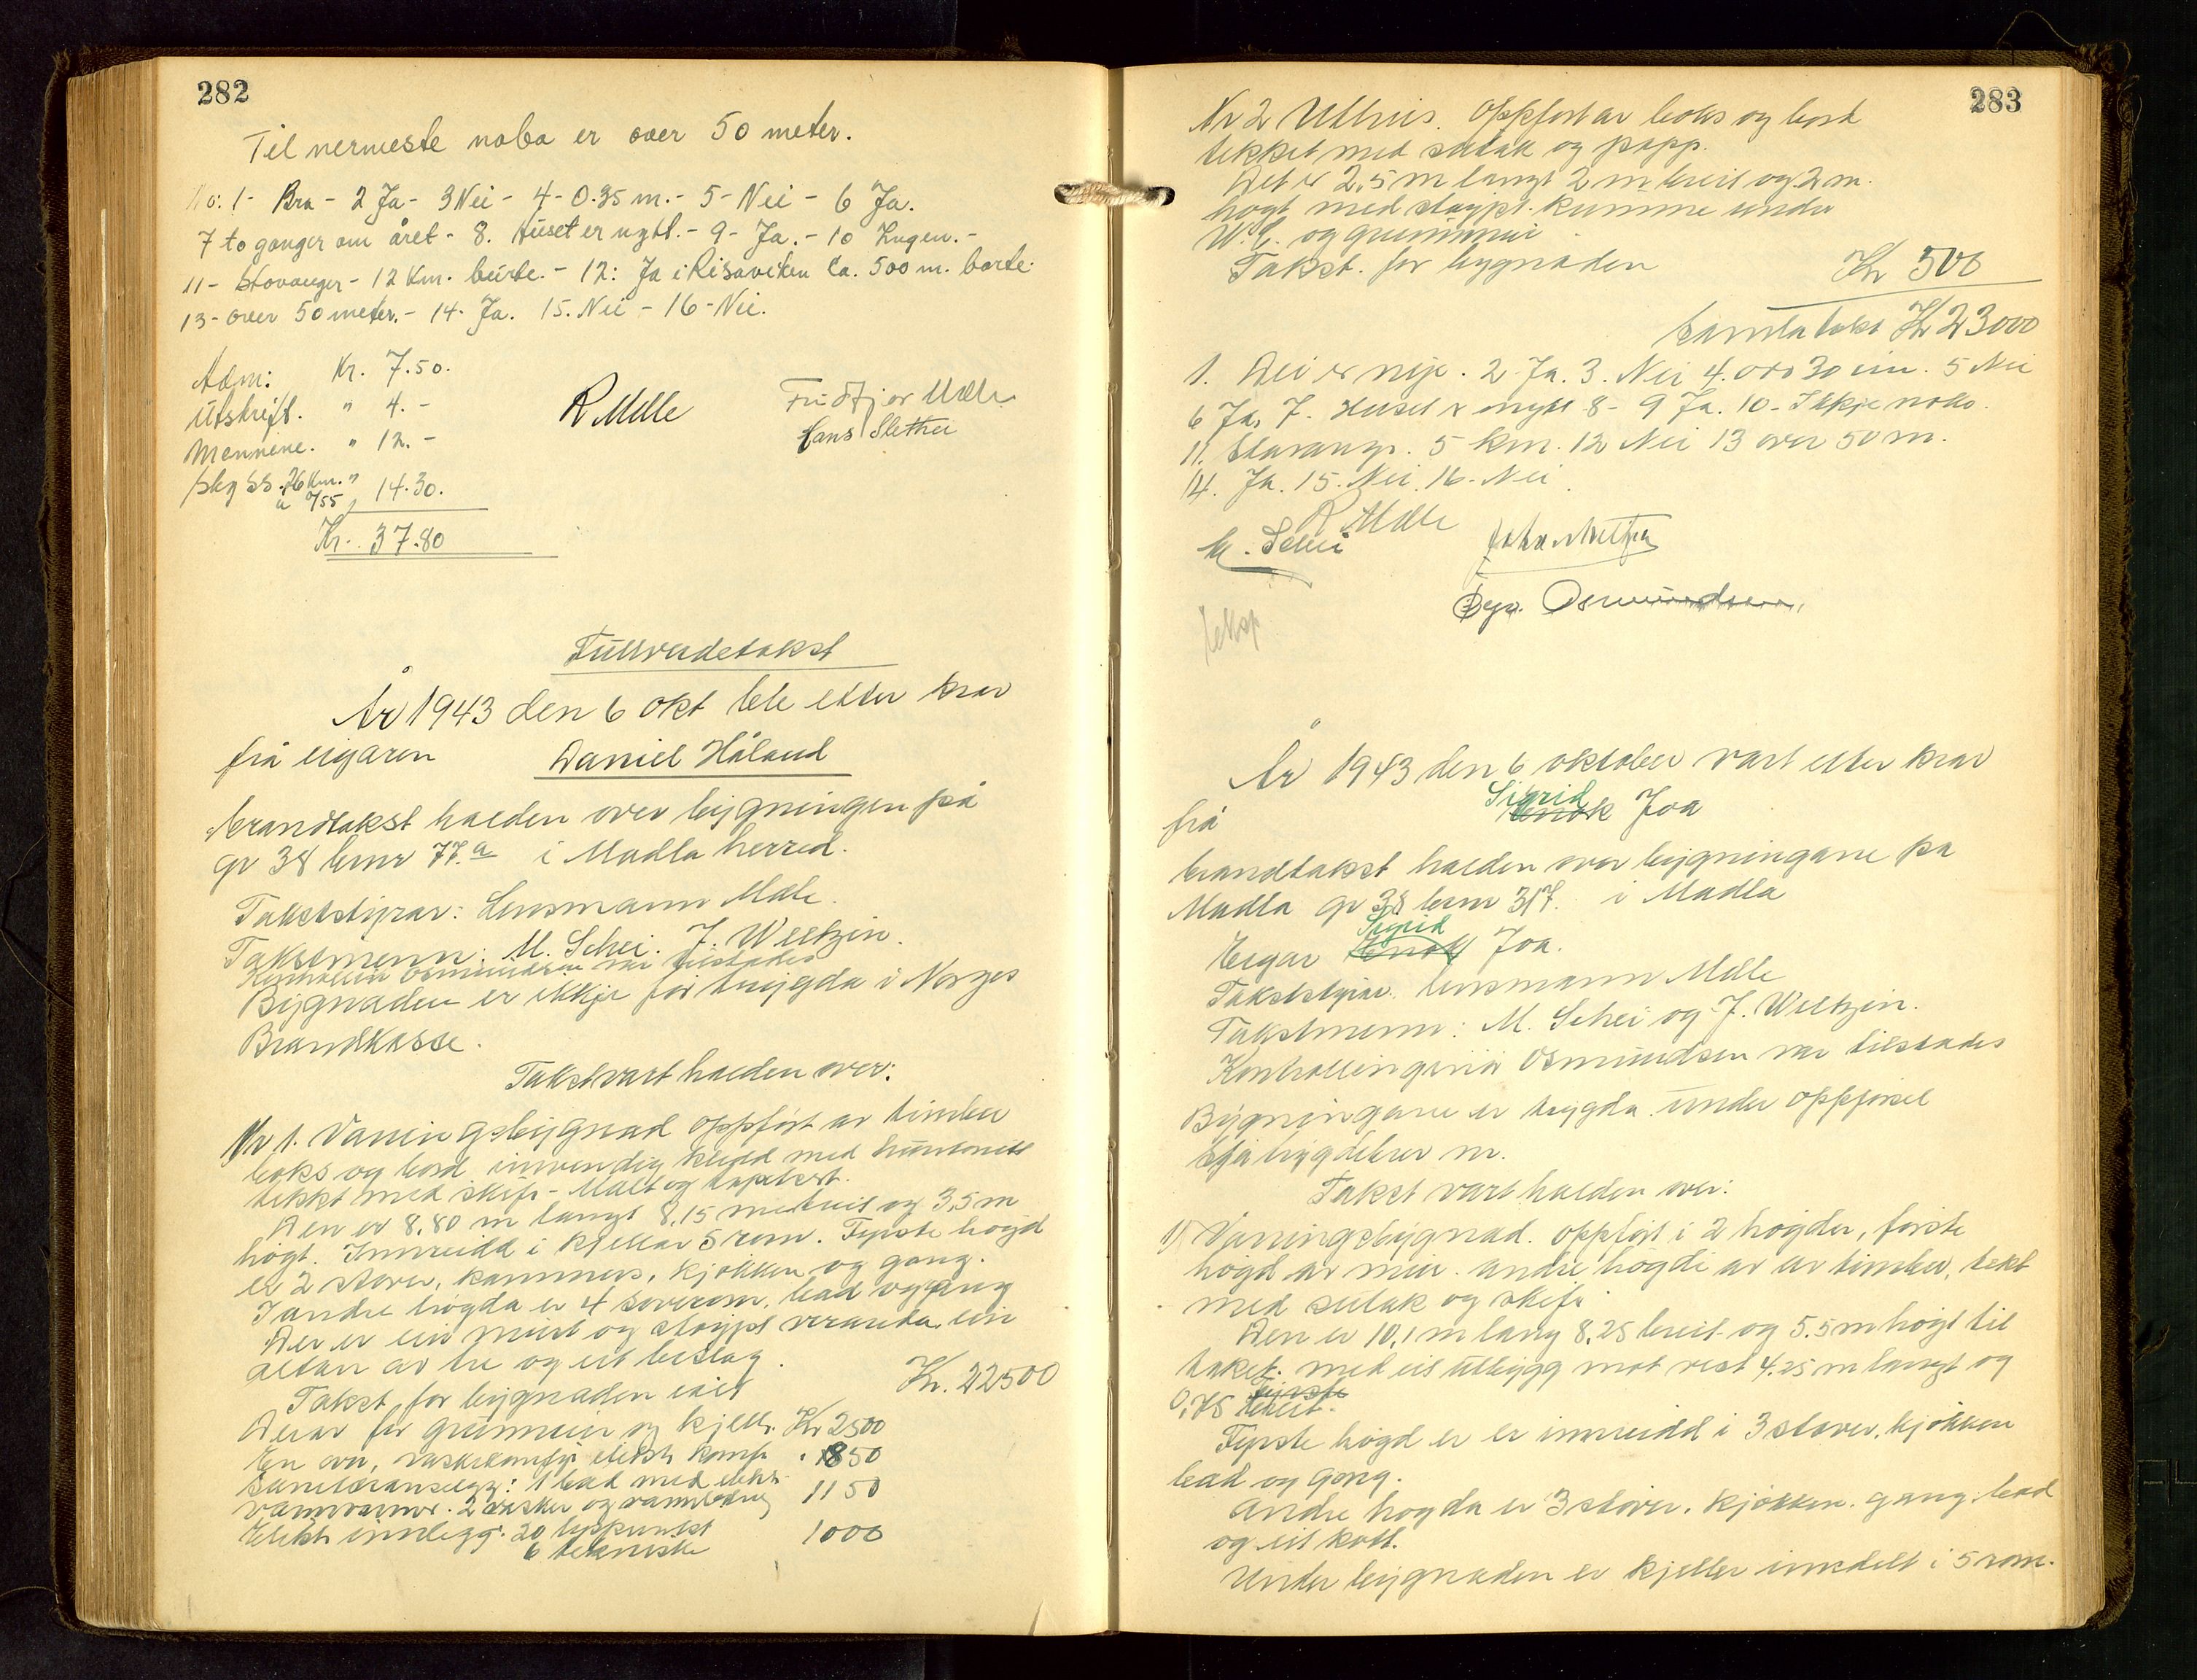 282
Til nermeste nabo er over 50 meter.
No: 1 - Bra - 2 Ja - 3 Nei - 4 - 0.35 m. - 5 - Nei - 6 Ja.
7 to ganger om året - 8. Huset er nytt. - 9 - Ja. - 10 Ingen. -
11 - Stavanger - 12 Km. burte. - 12: Ja i Risaviken Ca. 500 m. borte.
13 - over 50 meter. - 14. Ja. 15. Nei - 16 - Nei.
Adm: Kr. 7.50.
Utskrift. " 4. -
Mennene. " 12. -
skyss. 26 Km. "
à 0/55 " 14.30.
Kr. 37.80
R Mælle
Fridtjov Mælle
Hans Slethei
Fullverdetakst
År 1943 den 6 okt ble etter krav
frå eigaren Daniel Håland
brandtakst halden over bygningen på
gr 38 brnr 77.a i Madla herred.
Takststyrar: Lensmann Mæle.
Takstmenn: M. Schei. J. Weltzin.
Kontrollør Osmundsen var tilstades
Bygnaden er ikkje før trygda i Norges
Brandkasse.
Takst vart halden over:
Nr 1. Vaaningsbygnad oppført av timber
boks og bord innvendig kledd med huntonitt
tekkt med skifr - Malt og tapetsert.
Den er 8,80 m langt 8,15 m breit og 3,5 m
høgt. Innreidd i kjellar 5 rom. Fyrste høgd
er 2 stover, kammers, kjøkken og gang.
I andre høgda er 4 soverom, bad og gang
Der er ein murt og støypt veranda, ein
altan av tre og eit beslag.
Takst for bygnaden eit Kr. 22500
Derav for grunnmur og kjellr. Kr 2500
En ovn, vaskekomfyr elektr. komf " 1850
Sanitæranlegg: 1 bad med elektr.
vannvarmer. 2 vasker og vannledning 1150
Elektr innlegg. 20 lyspunkt 1000
6 tekniske
283
Nr 2 Uthus. Oppført av boks og bord
tekket med sutak og papp.
Det er 2,5 m langt 2 m breit og 2 m.
høgt med støypt kumme under
W.C. og grunnmur
Takst for bygnaden Kr 500
Samla takst Kr 23000
1. Dei er nye. 2 Ja. 3. Nei 4. 0 30 cm. 5 Nei
6 Ja, 7. Huset er nytt 8 - 9 Ja. 10 - Ikkje noko.
11. Stavangr. 5 km. 12 Nei 13 over 50 m.
14. Ja. 15. Nei. 16. Nei.
R Mælle
M. Schei
Joh. Weltzin
Osmundsen
År 1943 den 6 oktober vart etter krav
frå Sigrid Enok Joa
brandtakst halden over bygningane på
Madla gr 38 brnr 317. i Madla
Eigar Sigrid Enok Joa.
Takststyrar. lensmann Mæle
Takstmenn: M. Schei og J. Weltzin.
Kontrollingeniør Osmundsen var tilstades
Bygningane er trygda under oppførsel
Sjå trygdebrev nr.
Takst vart halden over:
1) Vaaningsbygnad. oppført i 2 høgder, første
høgd av mur. andre høgdi av ur timber, tekt
med sutak og skifr
Den er 10,1 m lang 8.25 breit og 5.5 m høgt til
taket. med eit utbygg mot vest 4.25 m langt og
fyrste
0.75 breit.
Fyrste høgd er er innreidd i 3 stover, kjøkken
bad og gong.
Andre høgda er 3 stover, kjøkken. gang. bad
og eit kott.
Under bygnaden er kjeller inndelt i 5 rom.